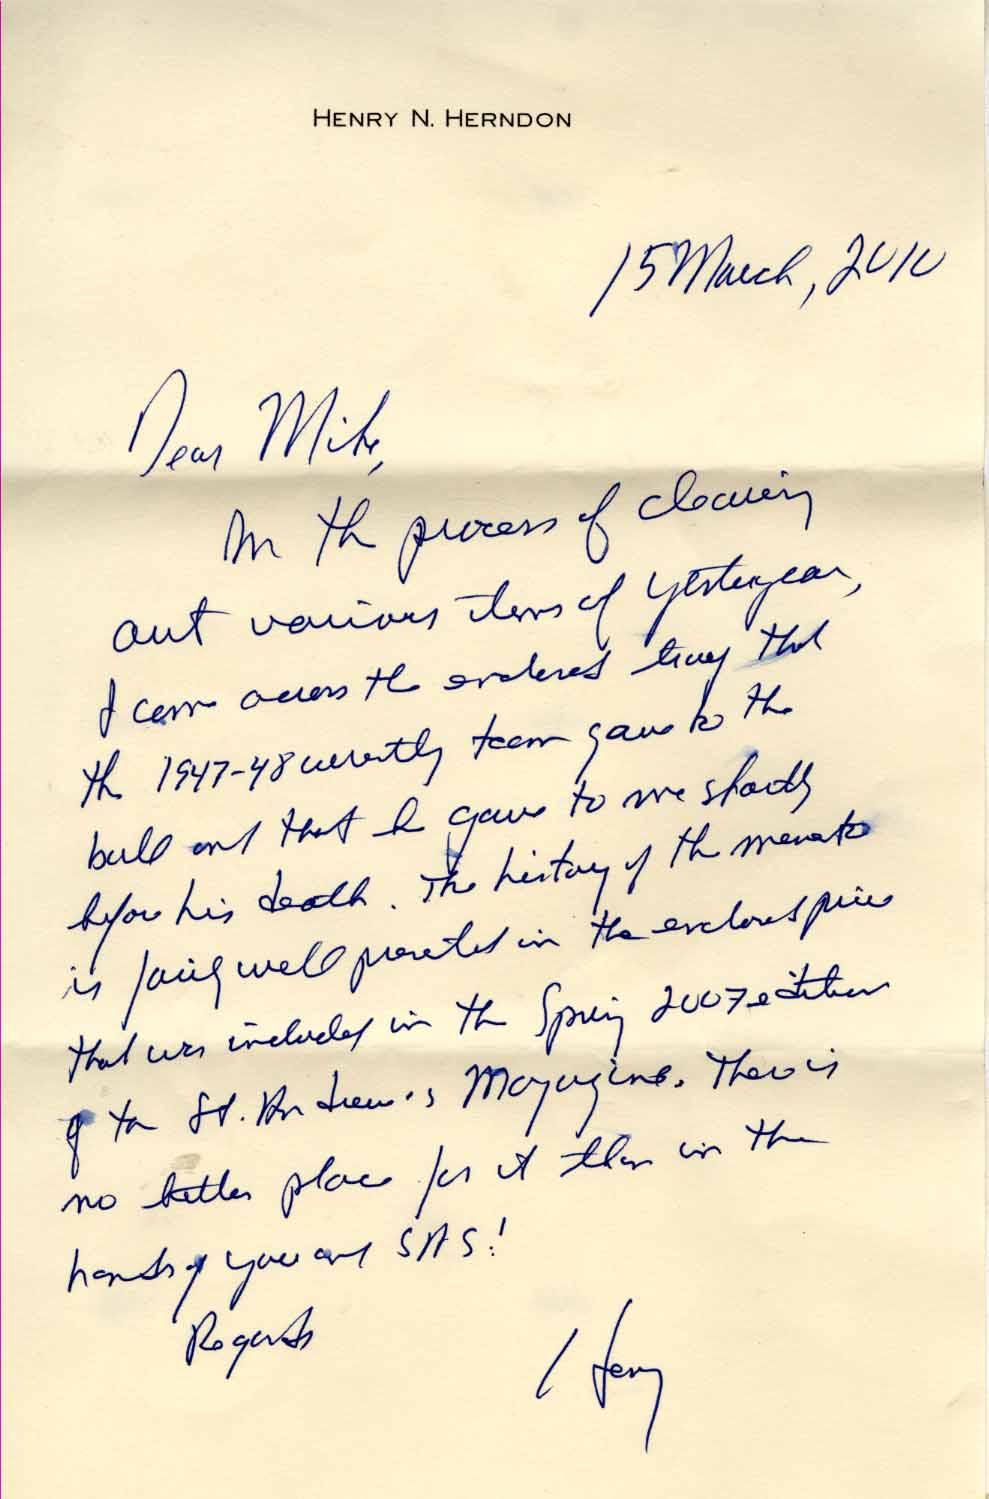 HENRY N. HERNDON
15 March, 2010
Dear Mike,
In the process of cleaning
out various items of yesteryear,
I came across the enclosed that
the 1947-48 wrestling team gave to the
and that he gave to me shortly
before his death. The history of the
is fairly well presented in the enclosed piece
that was included in the Spring 2007 edition
of the St. Andrew's Magazine. There is
no better place for it than in the
hands of you and SAS!
Regards
Henry